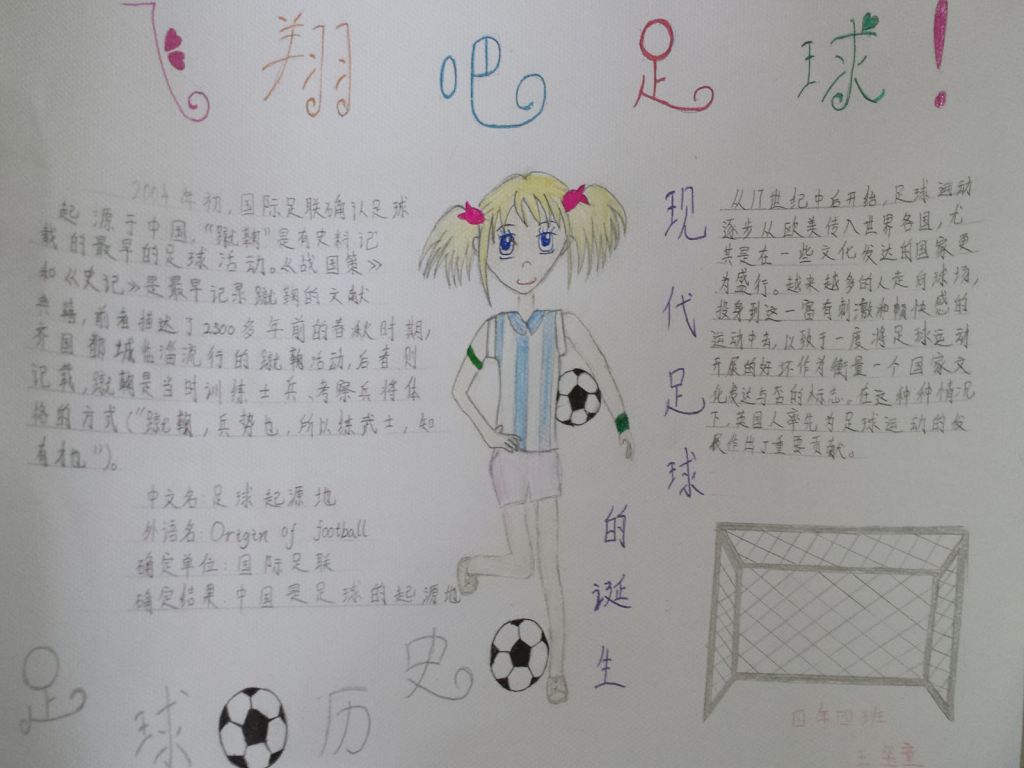 飞翔吧足球！
2004年初，国际足联确认足球
起源于中国，“蹴鞠”是有史料记
载的最早的足球活动。《战国策》
和《史记》是最早记录蹴鞠的文献
典籍，前者描述了2300多年前的春秋时期，
齐国都城临淄流行的蹴鞠活动，后者则
记载，蹴鞠是当时训练士兵、考察兵将体
格的方式（“蹴鞠，兵势也，所以练武士，知
有材也”）。
中文名：足球起源地
外语名：Origin of football
确定单位：国际足联
确定结果：中国是足球的起源地
足球历史
现代足球的诞生
从17世纪中后开始，足球运动
逐步从欧美传入世界各国，尤
其是在一些文化发达的国家更
为盛行。越来越多的人走向球场，
投身到这一富有刺激和快感的
运动中去，以致于一度将足球运动
开展的好坏作为衡量一个国家文
化发达与否的标志。在这种种情况
下，英国人率先为足球运动的发
展作出了重要贡献。
四年四班